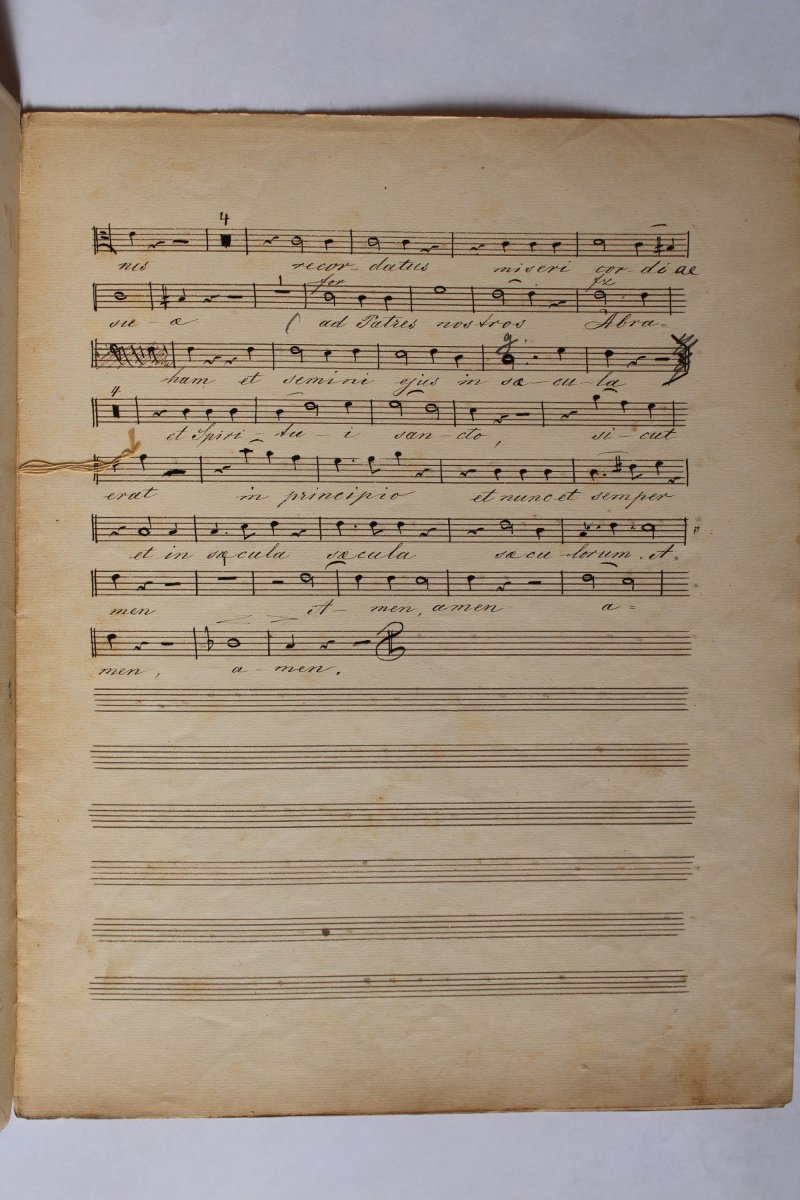 4
nis recor-datus miseri cor di ae
for fz
su-æ ( ad Patres nostros Abra-
g.
ham et semini ejus in sæ-cu-la
4
et Spiri-tu-i san-cto, si-cut
erat in principio et nunc et semper
et in sæcula sæcula sæcu-lorum. A-
men A-men, amen a-
men, a-men.